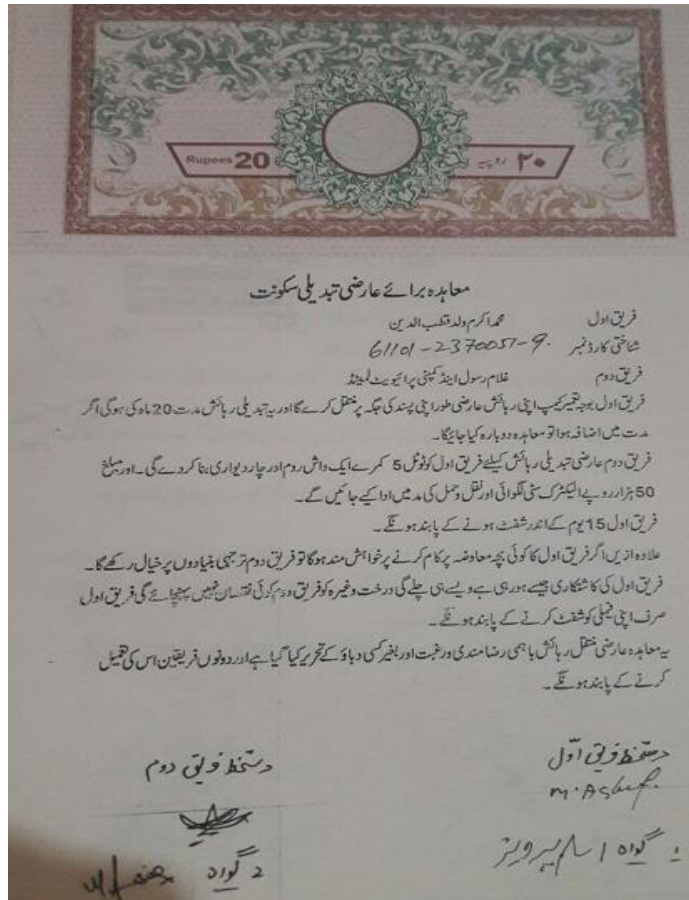 Rupees 20
۲۰ روپیہ
معاہدہ برائے عارضی تبدیلی سکونت
فریق اول محمد اکرم ولد قطب الدین
شناختی کارڈ نمبر 61101-2370051-9
فریق دوم غلام رسول اینڈ کمپنی پرائیویٹ لمیٹڈ
فریق اول بوجہ تعمیر کیمپ اپنی رہائش عارضی طور اپنی پسند کی جگہ پر منتقل کرے گا اور یہ تبدیلی رہائش مدت 20 ماہ کی ہوگی اگر
مدت میں اضافہ ہوا تو معاہدہ دوبارہ کیا جائیگا۔
فریق دوم عارضی تبدیلی رہائش کیلئے فریق اول کو ٹوٹل 5 کمرے ایک واش روم اور چار دیواری بنا کر دے گی۔ اور مبلغ
50 ہزار روپے الیکٹرک سٹی لگوائی اور نقل وحمل کی مد میں ادا کیے جائیں گے۔
فریق اول 15 یوم کے اندر شفٹ ہونے کے پابند ہونگے۔
علاوہ ازیں اگر فریق اول کا کوئی بچہ معاوضہ پر کام کرنے پر خواہش مند ہوگا تو فریق دوم ترجیحی بنیادوں پر خیال رکھے گا۔
فریق اول کی کاشتکاری جیسے ہو رہی ہے ویسے ہی چلے گی درخت وغیرہ کو فریق دوم کوئی نقصان نہیں پہنچائے گی فریق اول
صرف اپنی فیملی کو شفٹ کرنے کے پابند ہونگے۔
یہ معاہدہ عارضی منتقل رہائش باہمی رضا مندی ورغبت اور بغیر کسی دباؤ کے تحریر کیا گیا ہے اور دونوں فریقین اس کی تعمیل
کرنے کے پابند ہونگے۔
دستخط فریق اوّل
دستخط فریق دوم
گواہ 1 اسلم پرویز
2 گواہ